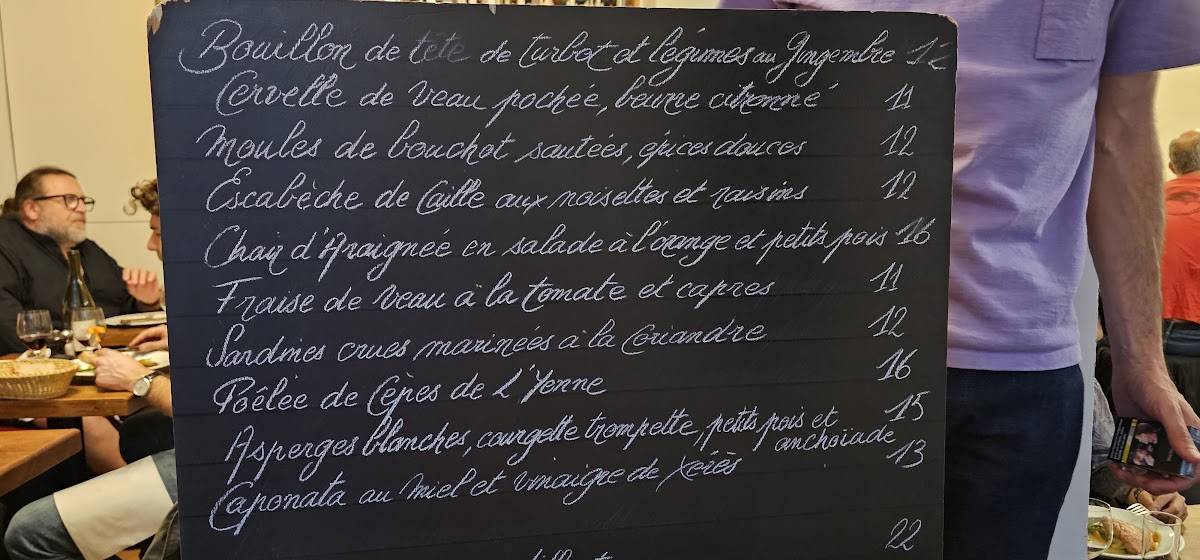 Bouillon de tête de turbot et légumes au gingembre 12
Cervelle de Veau pochée, beurre citronné 11
Moules de bouchot sautées, épices douces 12
Escabèche de Caille aux noisettes et raisins 12
Chair d'Araignée en salade à l'orange et petits pois 16
Fraise de Veau à la tomate et capres 11
Sardines crues marinées à la Coriandre 12
Poêlée de Cèpes de L'Yonne 16
Asperges blanches, courgette trompette, petits pois et 15
anchoïade
Caponata au Miel et vinaigre de Xérès 13
22